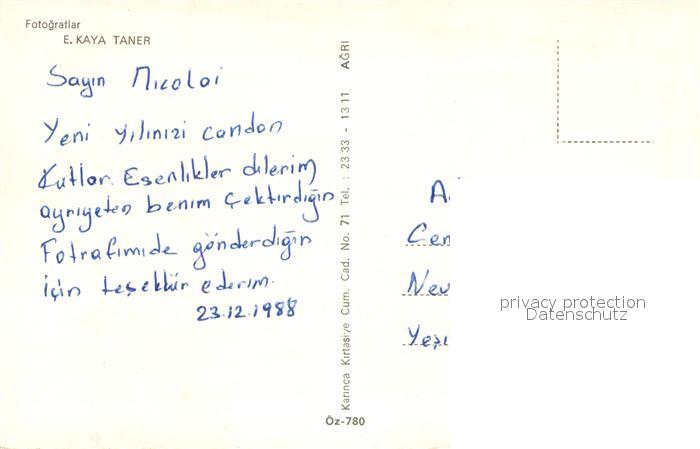 Fotoğratlar
E. KAYA TANER
Sayın Nicolai
Yeni yılınızi candan
Kutlar. Esenlikler dilerim
ayrıyeten benim çektirdiğin
Fotrafımıde gönderdiğin
için teşekkür ederim.
23.12.1988
Karınca Kırtasiye Cum. Cad. No. 71 Tel. : 23 33 - 13 11 AĞRI
Öz-780
A.
Cen
Nev
Yeşı
privacy protection
Datenschutz